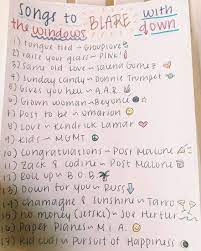 Songs to BLARE with
the windows down
1) tongue tied ~ Grouplove
2) raise your glass ~ P!NK
3) same old love ~ Selena Gomez
4) Sunday candy ~ Donnie Trumpet
5) Gives you hell ~ A.A.R
6) Grown woman ~ Beyonce
7) Post to be ~ Omarion
8) Love ~ Kendrick Lamar
9) Kids ~ MGMT
10) congratulations ~ Post Malone
11) Zack & codine ~ Post Malone
12) Roll up ~ B.O.B
13) Down for you ~ Russ
14) champagne & sunshine ~ Tarro
15) no money (Jetski) ~ Joe
16) Paper Planes ~ M.I.A.
17) Kid Cudi ~ Pursuit of Happiness